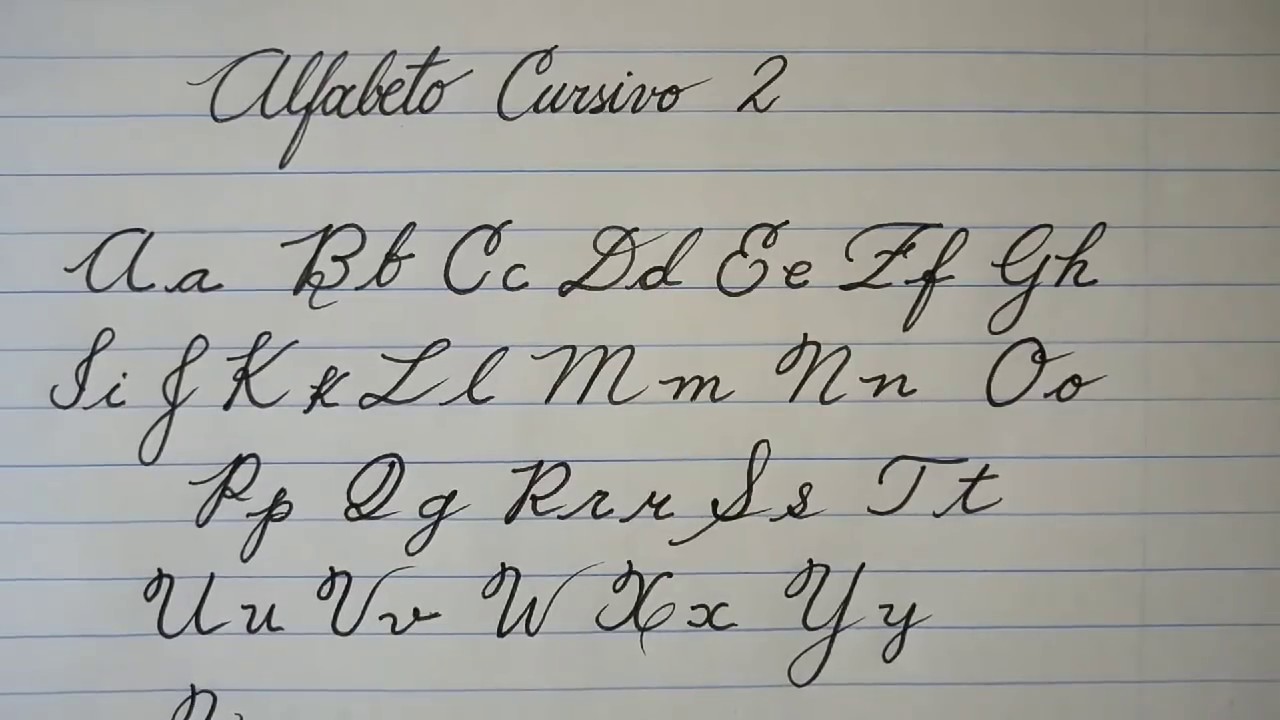 Alfabeto Cursivo 2
A a B b C c D d E e F f G h
I i J K k L l M m N n O o
P p Q q R r r S s T t
U u V v W X x Y y